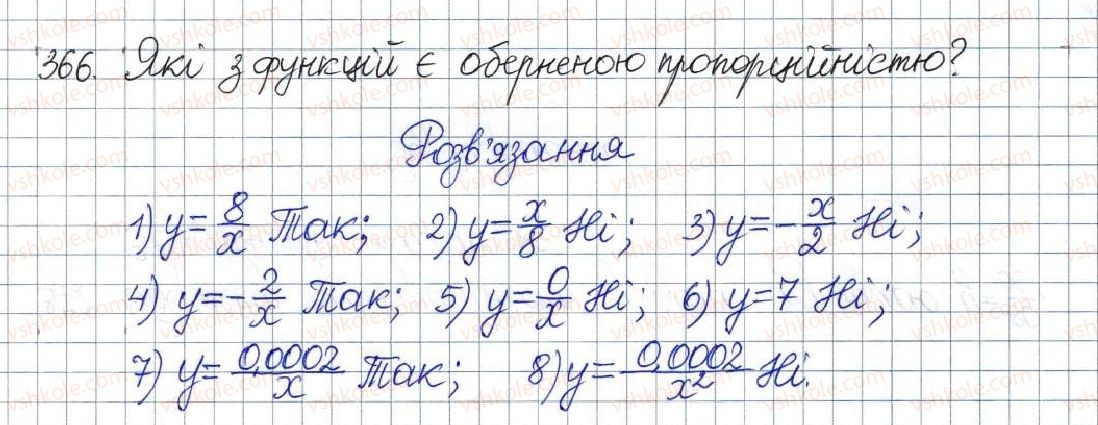 366. Які з функцій є оберненою пропорційністю?
Розв'язання
1) y = 8/x Так; 2) y = x/8 Ні; 3) y = -x/2 Ні;
4) y = -2/x Так; 5) y = 0/x Ні; 6) y = 7 Ні;
7) y = 0,0002/x Так; 8) y = 0,0002/x² Ні.